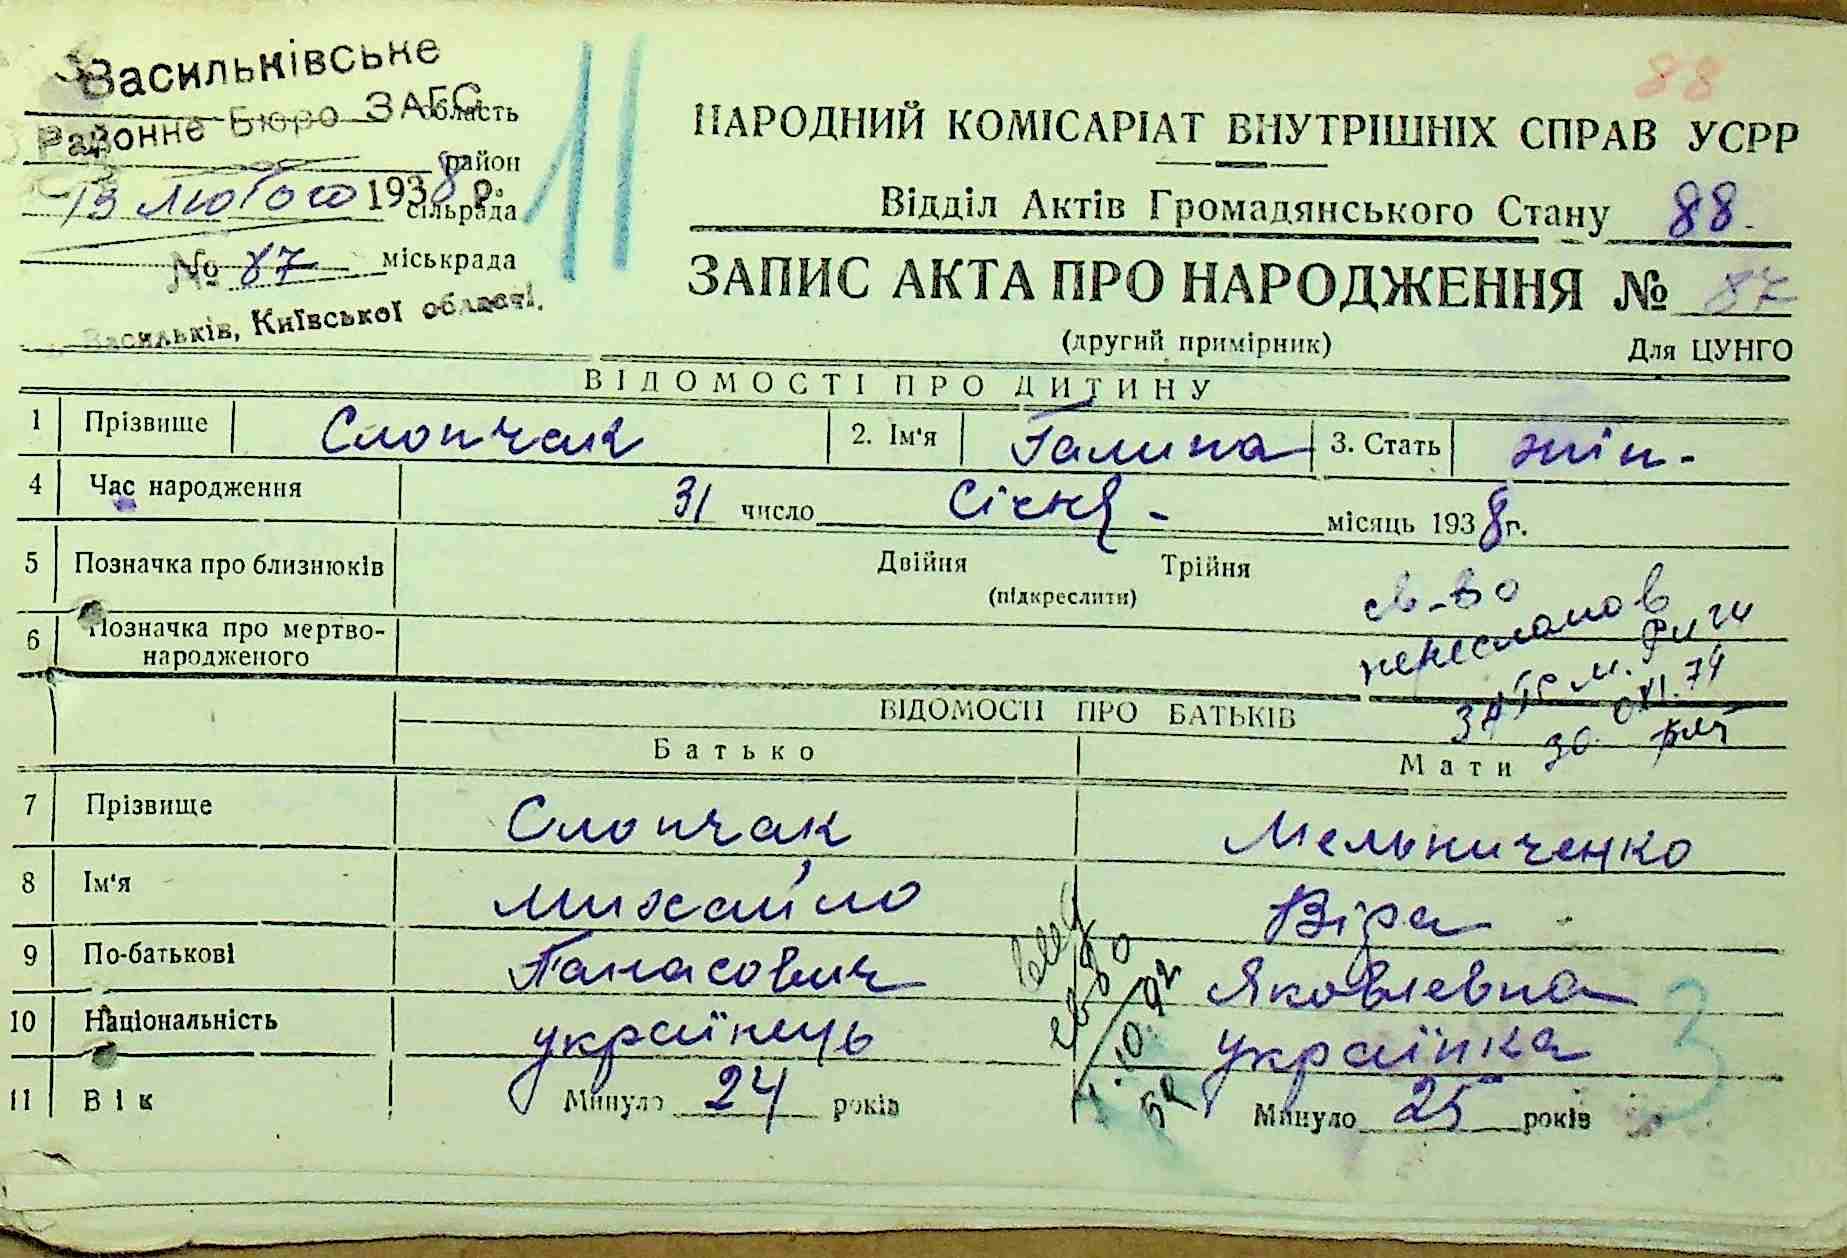 Васильківське
Районне Бюро ЗАГС
область
район
13 лютого 1938 р.
сільрада
№ 87 міськрада
Васильків, Київської області.
11
88
НАРОДНИЙ КОМІСАРІАТ ВНУТРІШНІХ СПРАВ УСРР
Відділ Актів Громадянського Стану 88.
ЗАПИС АКТА ПРО НАРОДЖЕННЯ № 87
(другий примірник) Для ЦУНГО
ВІДОМОСТІ ПРО ДИТИНУ
1 Прізвище Слопчак 2. Ім'я Галина 3. Стать жін.
4 Час народження 31 число Січня - місяць 1938 г.
5 Позначка про близнюків Двійня Трійня
(підкреслити)
6 Позначка про мертво-
народженого
св-во
переслано в
ЗАГС м. Риги
30.XI.74
ВІДОМОСТІ ПРО БАТЬКІВ
Батько Мати
7 Прізвище Слопчак Мельниченко
8 Ім'я Михайло Віра
9 По-батькові Панасович Яковлевна
10 Національність українець українка
11 Вік Минуло 24 років Минуло 25 років
св-во
3